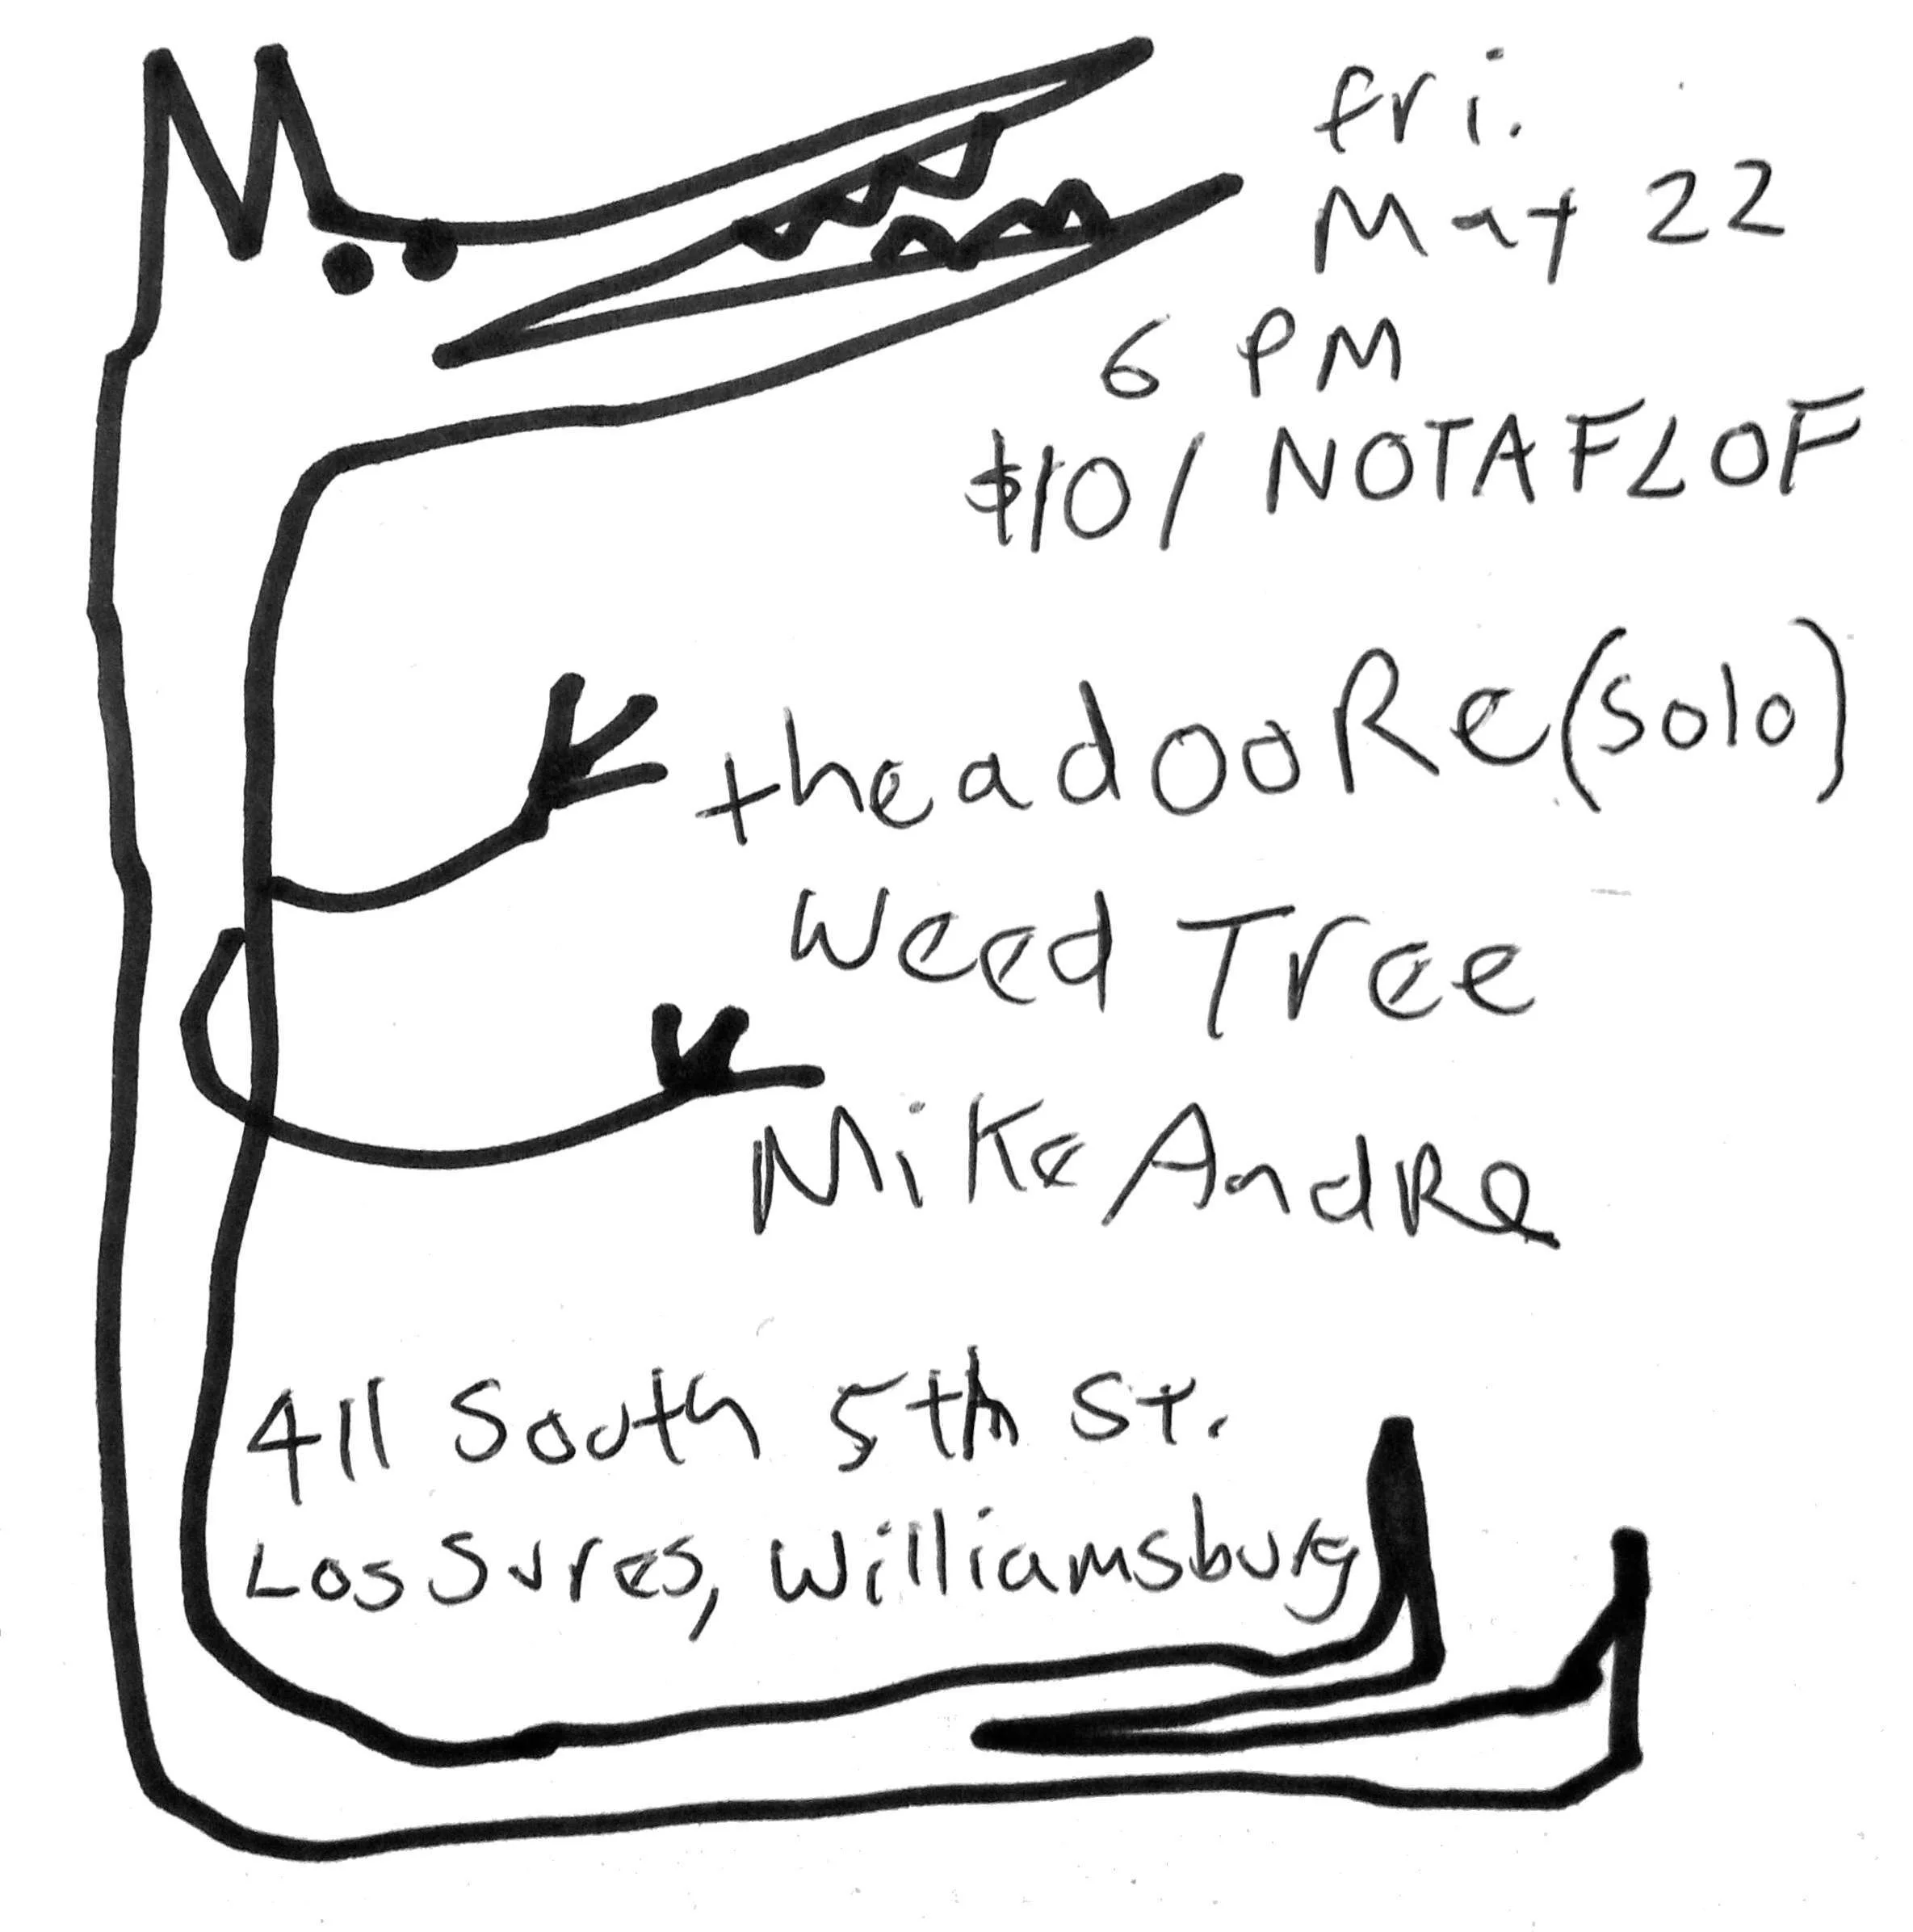 fri.
May 22
6 PM
$10/ NOTAFLOF
theadooRe (solo)
Weed Tree
Mike AndRe
411 South 5th St.
Los Sures, Williamsburg